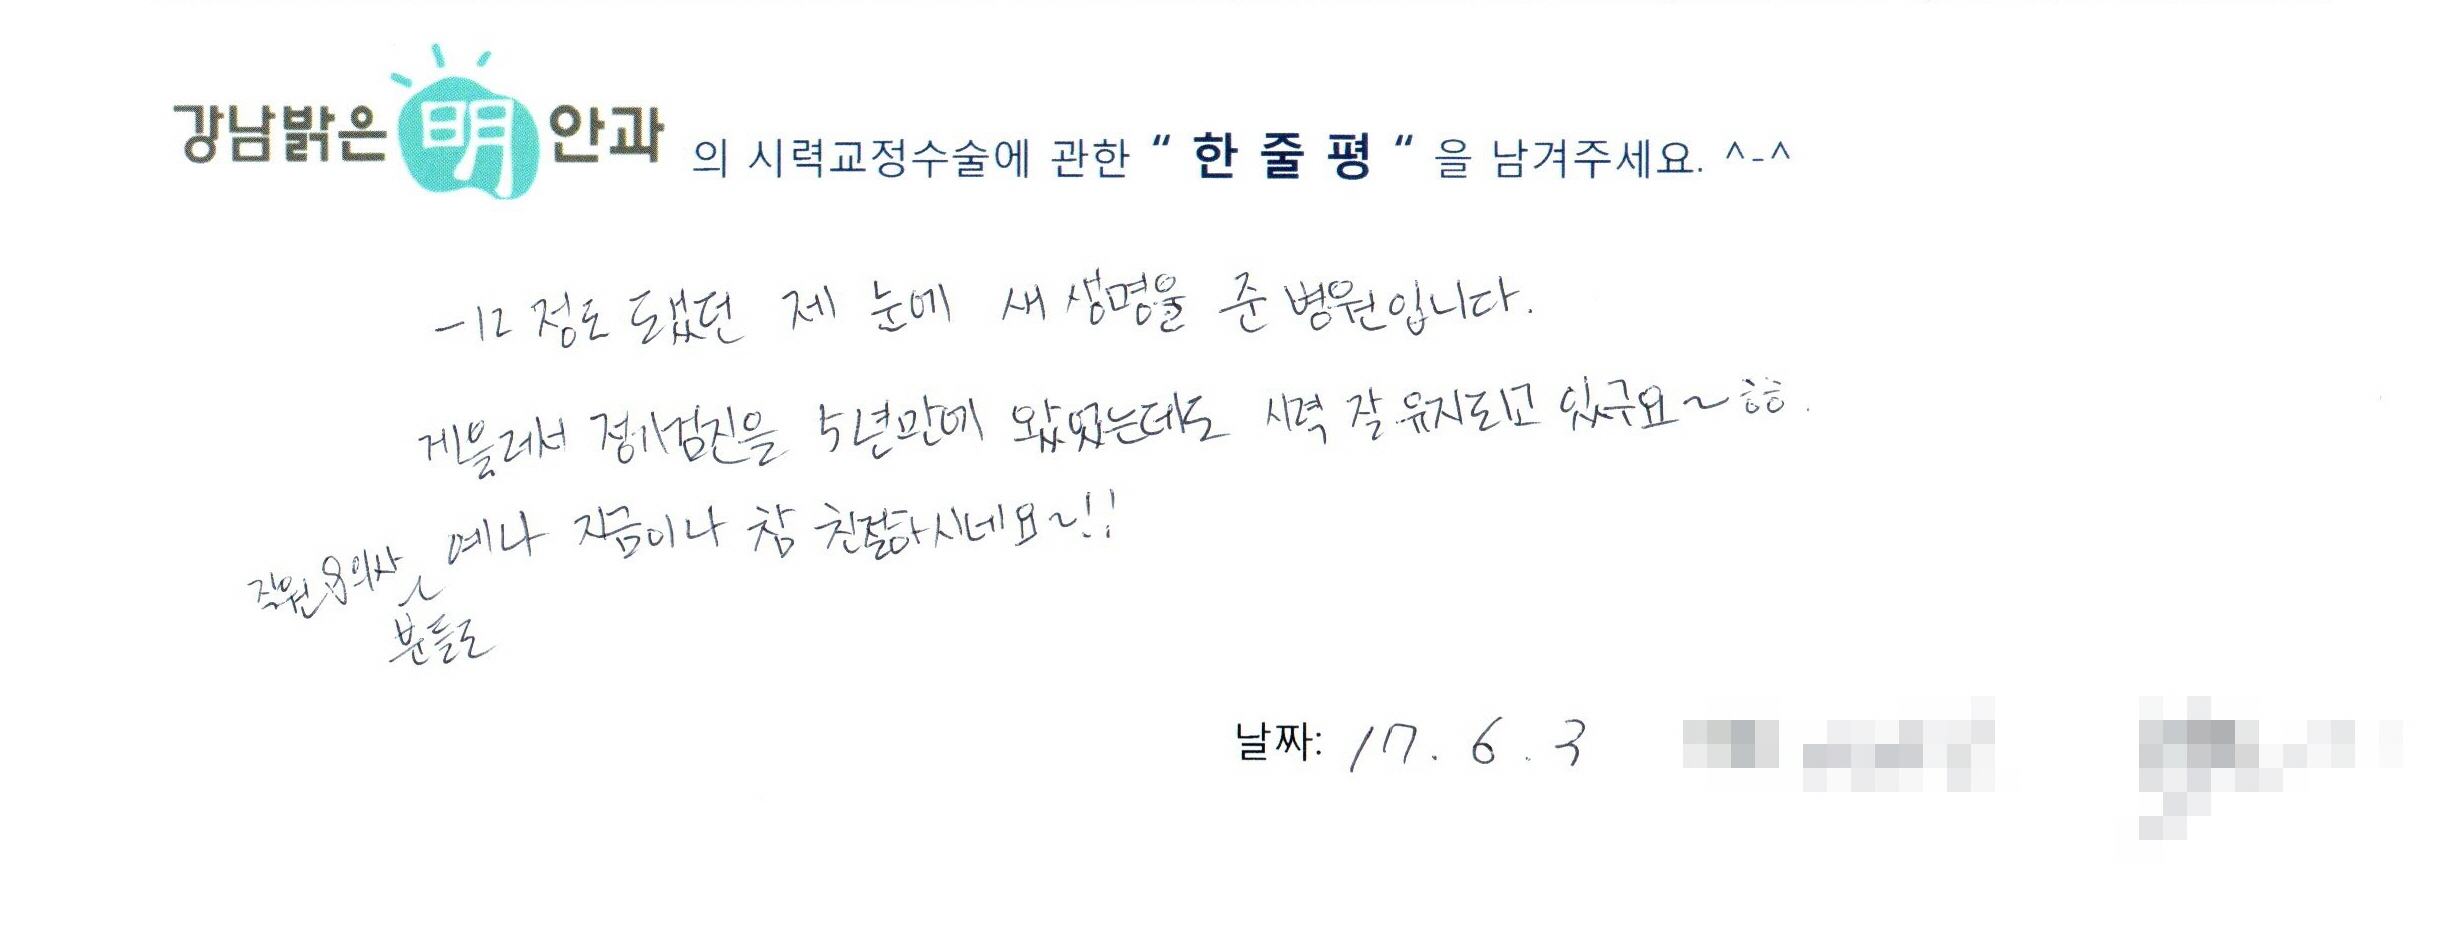 강남밝은 明 안과 의 시력교정수술에 관한 “ 한 줄 평 “ 을 남겨주세요. ^-^
-12 정도 됐었던 제 눈에 새 생명을 준 병원입니다.
게을러서 정기검진을 5년만에 왔었는데도 시력 잘 유지되고 있구요~ㅎㅎ.
직원&의사 분들도 예나 지금이나 참 친절하시네요~!!
날짜: 17. 6. 3